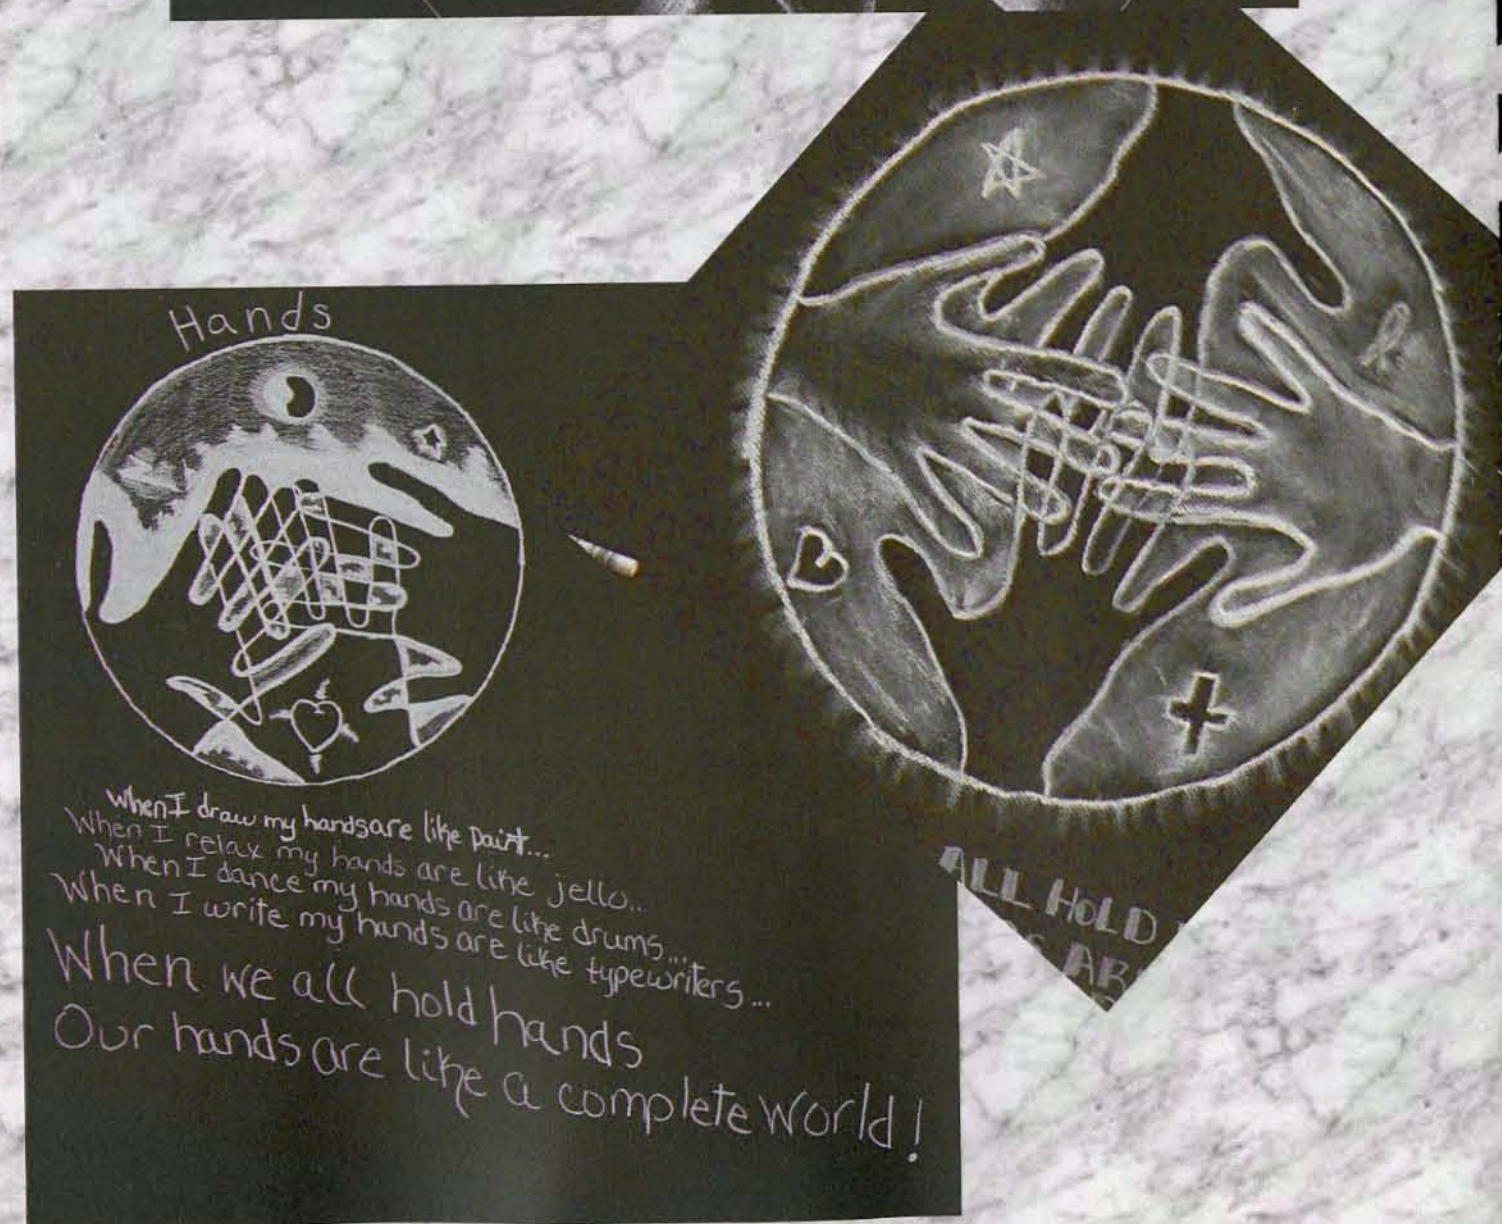 Hands
When I draw my hands are like paint...
When I relax my hands are like jello...
When I dance my hands are like drums...
When I write my hands are like typewriters...
When we all hold hands
Our hands are like a complete world!
ALL HOLD